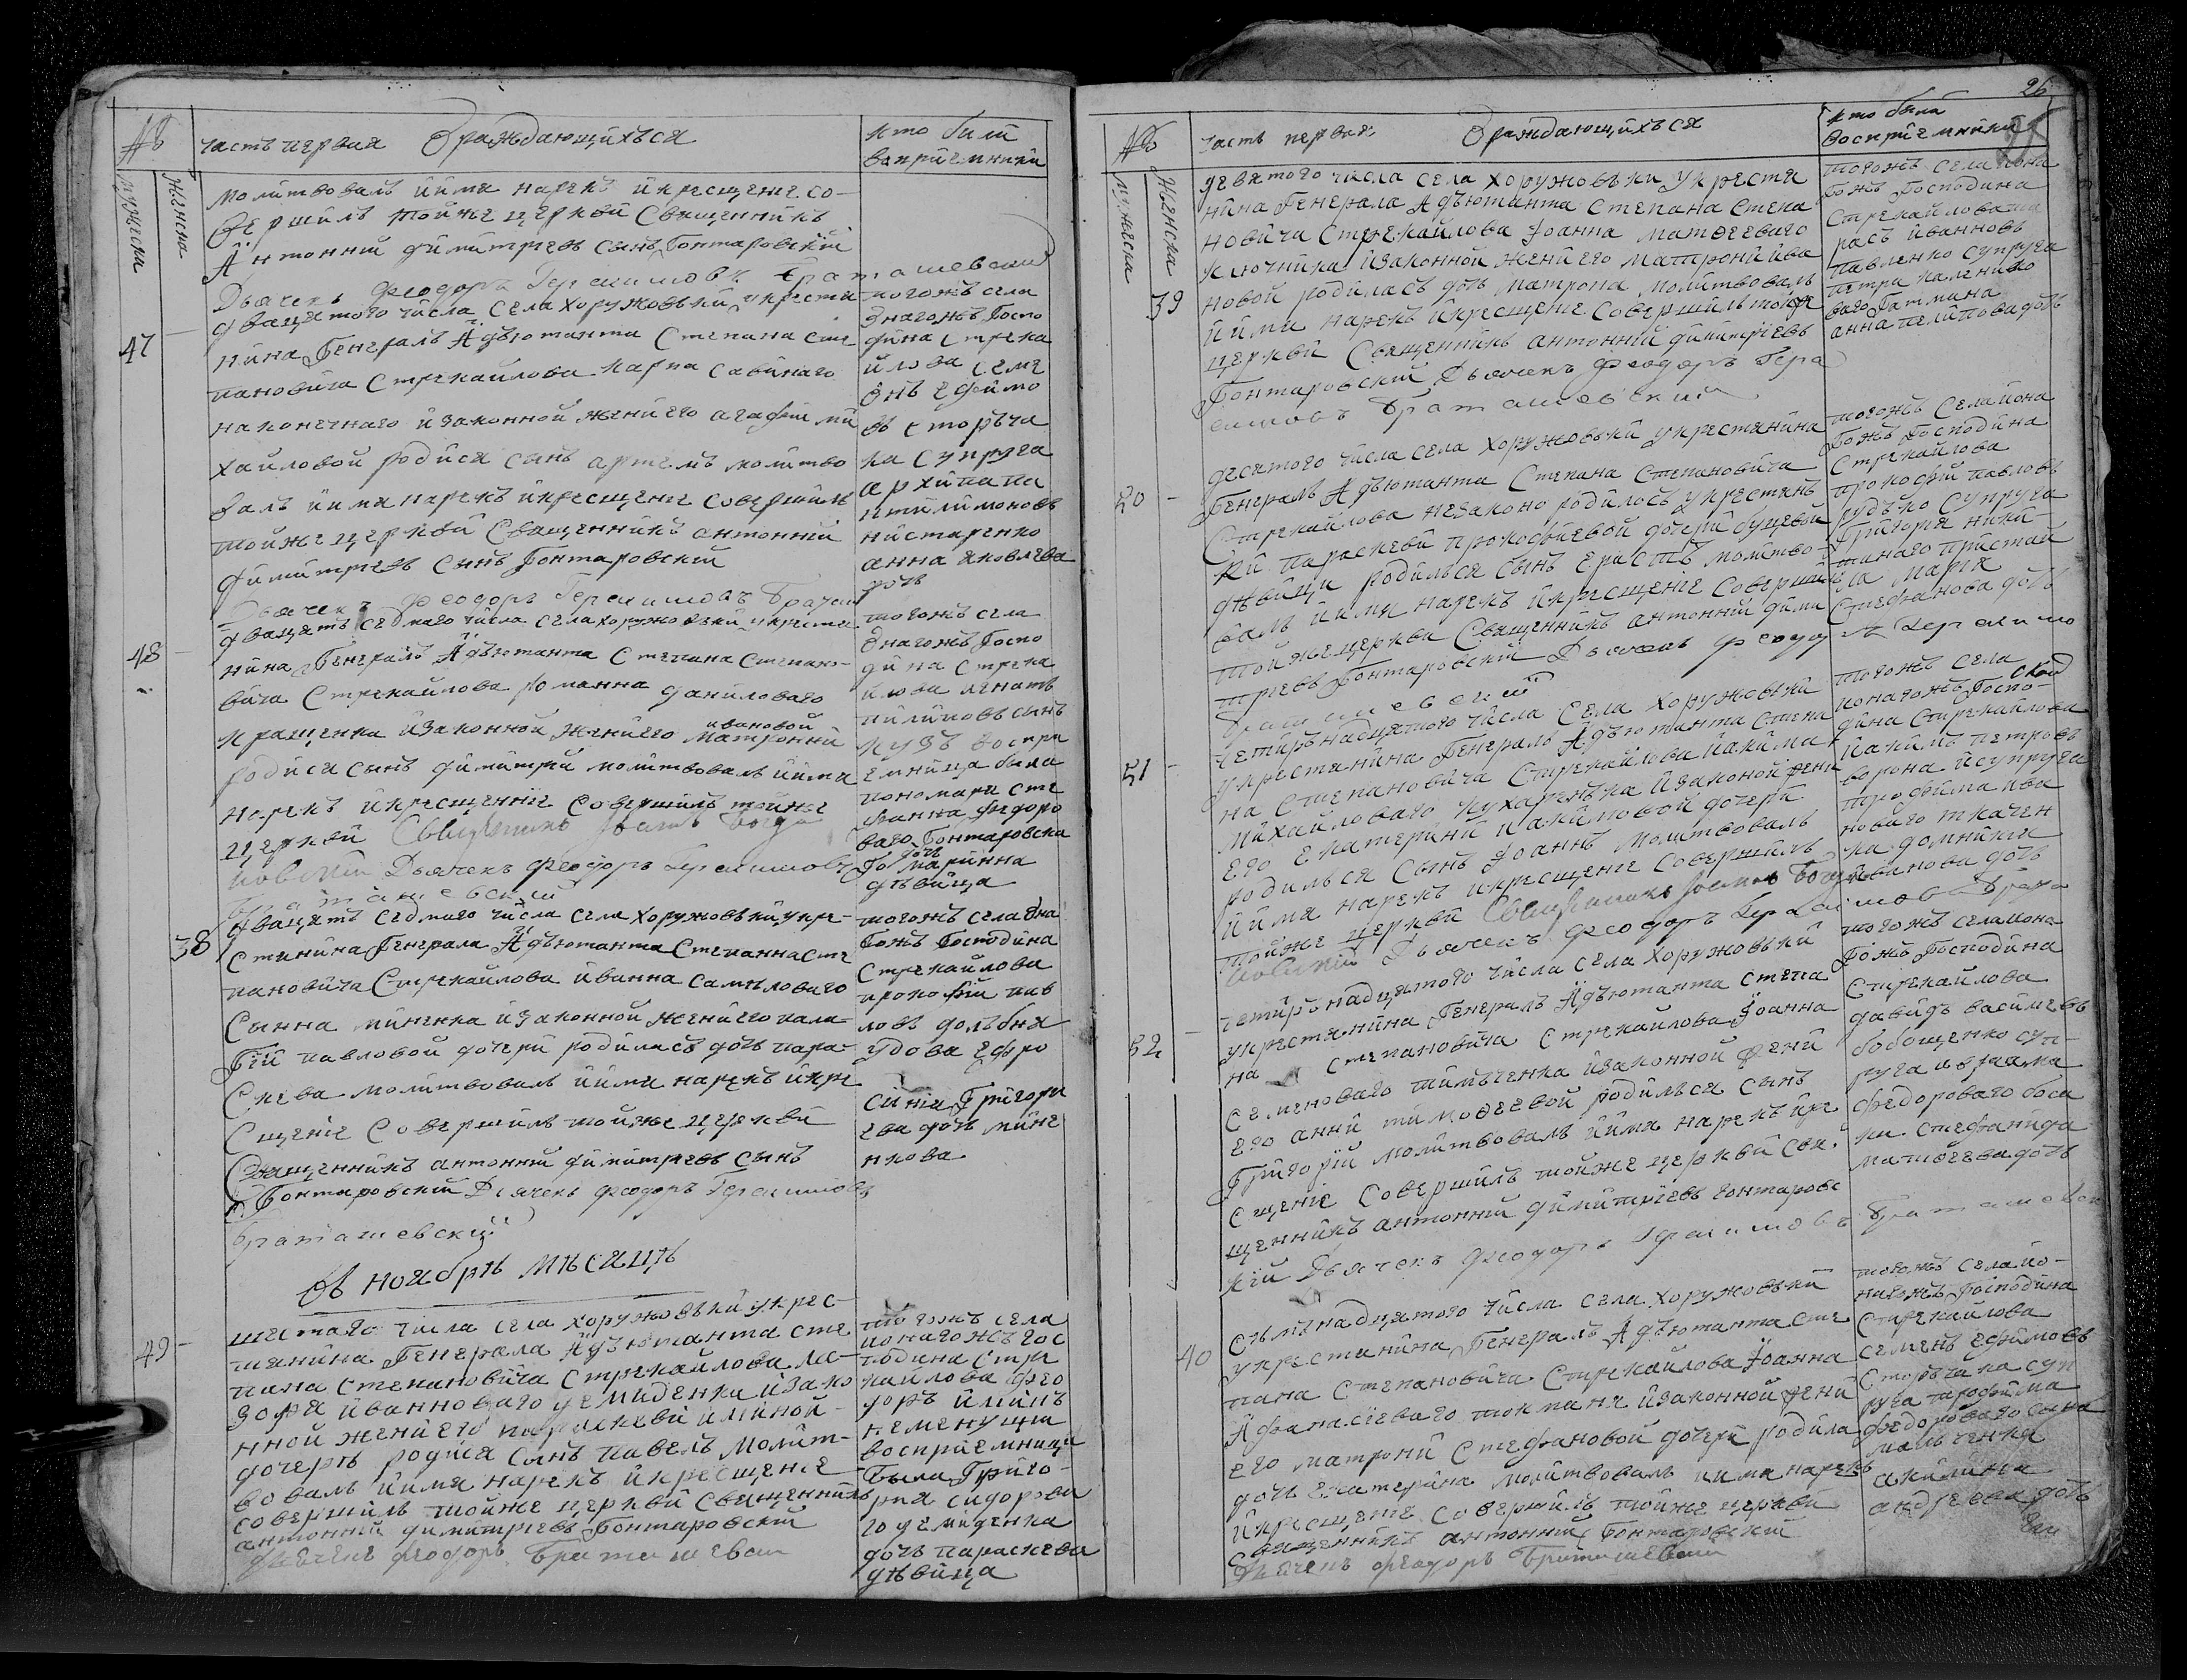 №
часть первая О раждающихъся
кто били
вопрiемники
мужеска
женска
молитвовалъ и имя нарекъ и крещенiе со-
вершилъ тойже церкви Священникъ
Антоний димитриевъ сынъ Гонтаровский
Дьячекъ Феодоръ Герасимовъ Браташевский
47
двацятого числа села хоружовъки у крестя
нина Генералъ Адъютанта Степана Сте
пановича Стрекайлова карпа савиного
наконечнаго и законной жени его агафии ми
хайловой родися сынъ артемъ молитво
валъ и имя нарекъ и крещение совершилъ
тойже церкви Священникъ антоний
димитриевъ сынъ Гонтаровский
Дьячекъ Феодоръ Герасимовъ
тогожъ села
онагожъ Госпо
дина Стрека
йлова семе
онъ ефимо
въ сторѣча
ка супруга
архипа па
нтилимоновъ
нистаренко
анна яковлева
дочь
48
двацять седмаго числа села хоружовъки у крестя
нина Генералъ Адъютанта Степана Степано-
вича Стрекайлова романна даниловаго
кращенка и законной жени его ивановой матронии
родися сынъ димитрий молитвовалъ и имя
нарекъ и крещенние совершилъ тойже
церкви Священникъ Иоаннъ
Дьячекъ Феодоръ Герасимовъ
Браташевский
тогожъ села
онагожъ Госпо
дина Стрека
йлова игнатъ
пилиповъ сынъ
куцъ воспри
емница была
пономаря сте
фанна федоро
ваго Гонтаровска
го дочь маринна
дѣвица
38
двацять седмаго числа села хоружовъки у кре-
стянина Генерала Адъютанта Степанна Сте
пановича Стрекайлова иванна самуловаго
сынна миненка и законной жени его пала-
гии павловой дочери родиласъ дочь пара-
скева молитвовалъ и имя нарекъ и кре
щение совершилъ тойже церкви
Священникъ антоний димитриевъ сынъ
Гонтаровский Дьячекъ Феодоръ Герасимовъ
Браташевский
тогожъ села она
гожъ Господина
Стрекайлова
прокофий пав
ловъ долъбня
удова ефро
синия Григори
ева дочь мине
нкова
Въ ноябрѣ мѣсяцѣ
49
шестаго числа села хоружовъки у крес-
тянина Генерала Адъютанта сте
пана степановича стрекайлова ла-
зоря иванноваго демиденка и зако
нной жени его параскеви илиной
дочерѣ родися синъ павелъ молит-
вовалъ и имя нарекъ и крещенье
совершилъ тойже церкви священникъ
антоний димитриевъ Гонтаровский
Дьячекъ Феодоръ Браташевски
тогожъ села
понагожъ гос
подина стре
кайлова фео
доръ илиинъ
неменущи
восприемница
была Григо-
рия сидорова
го демиденка
дочъ параскева
дѣвица
26
№
часть первая О раждающихъся
кто были
восприемники
мужеска
женска
39
девятого числа села хоружовъки у крестя
нина Генерала Адъютанта Степана Степа
новича Стрекайлова Iоанна матѳеевого
ключника и законной жени его матронии ива
новой родиласъ дочь матрона молитвовалъ
и имя нарекъ и крещение совершилъ тойже
церкви Священникъ антоний димитриевъ
Гонтаровский Дьячекъ Феодоръ Гера
симовъ Браташевъский
тогожъ села иона
гожъ Господина
Стрекайлова та
расъ иванновъ
павленко супруга
петра каленико
ваго Гатмана
анна пелипова дочь
50
десятого числа села хоружовъки у крестянина
Генералъ Адъютанта Степана Степановича
Стрекайлова незаконо родилосъ у крестянъ
ки параскеви прокофиевой дочери буцевой
дѣвици родилъся сынъ ерастъ молитво-
валъ и имя нарекъ и крещение совершилъ
тойже церкви Священникъ антоний дими
триевъ Гонтаровский Дьячекъ Феодоръ Герасимо
Браташевский
тогожъ села иона
гожъ Господина
Стрекайлова
прокофий павловъ
рудъко супруга
Григория ники-
тинаго пристай
ла мария
Стефанова дочь
51
четирънадцятого числа села хоружовъки
у крестянина Генералъ Адъютанта Степа
на Степановича Стрекайлова иакима
михайловаго кухаренъка и законной жени
его екатерини иакимовой дочери
родилъся сынъ Iоаннъ молитвовалъ
и имя нарекъ и крещение совершилъ
тойже церкви Священникъ Иоаннъ
Дьячекъ Феодоръ Герасимовъ
тогожъ села
ионагожъ Госпо-
дина Стрекайлова
иакимъ петровъ
ворона и супруга
трофима ива
новаго ткачен
ка домникия
иванова дочь
52
четирънадцятого числа села хоружовъки
у крестянина Генералъ Адъютанта Степа
на Степановича Стрекайлова Iоанна
семеноваго тимъченка и законной жени
его анни тимоѳеевой родилъся сынъ
Григорий молитвовалъ и имя нарекъ и кре
щение совершилъ тойже церкви свя
щенникъ антоний димитриевъ гонтаровс
кий Дьячекъ Феодоръ Герасимовъ Браташевски
тогожъ села иона
гожъ Господина
Стрекайлова
давидъ василиевъ
бобошенко суп-
руга авраама
федороваго боса
ки стефанида
матѳеева дочь
40
сѣмънадцятого числа села хоружовъки
у крестянина Генералъ Адъютанта сте
пана Степановича Стрекайлова Iоанна
Афанасиеваго токманя и законной жени
его матрони Стефановой дочери родила
дочь екатерина молитвовалъ и имя нарекъ
и крещение совершилъ тойже церкви
Священникъ антоний Гонтаровский
Дьячекъ Феодоръ Браташевски
тогожъ села ио-
нагожъ Господина
Стрекайлова
семенъ ефимовъ
сторѣчака суп
руга трофима
федороваго сына
малъченка
акилина
андреева дочь